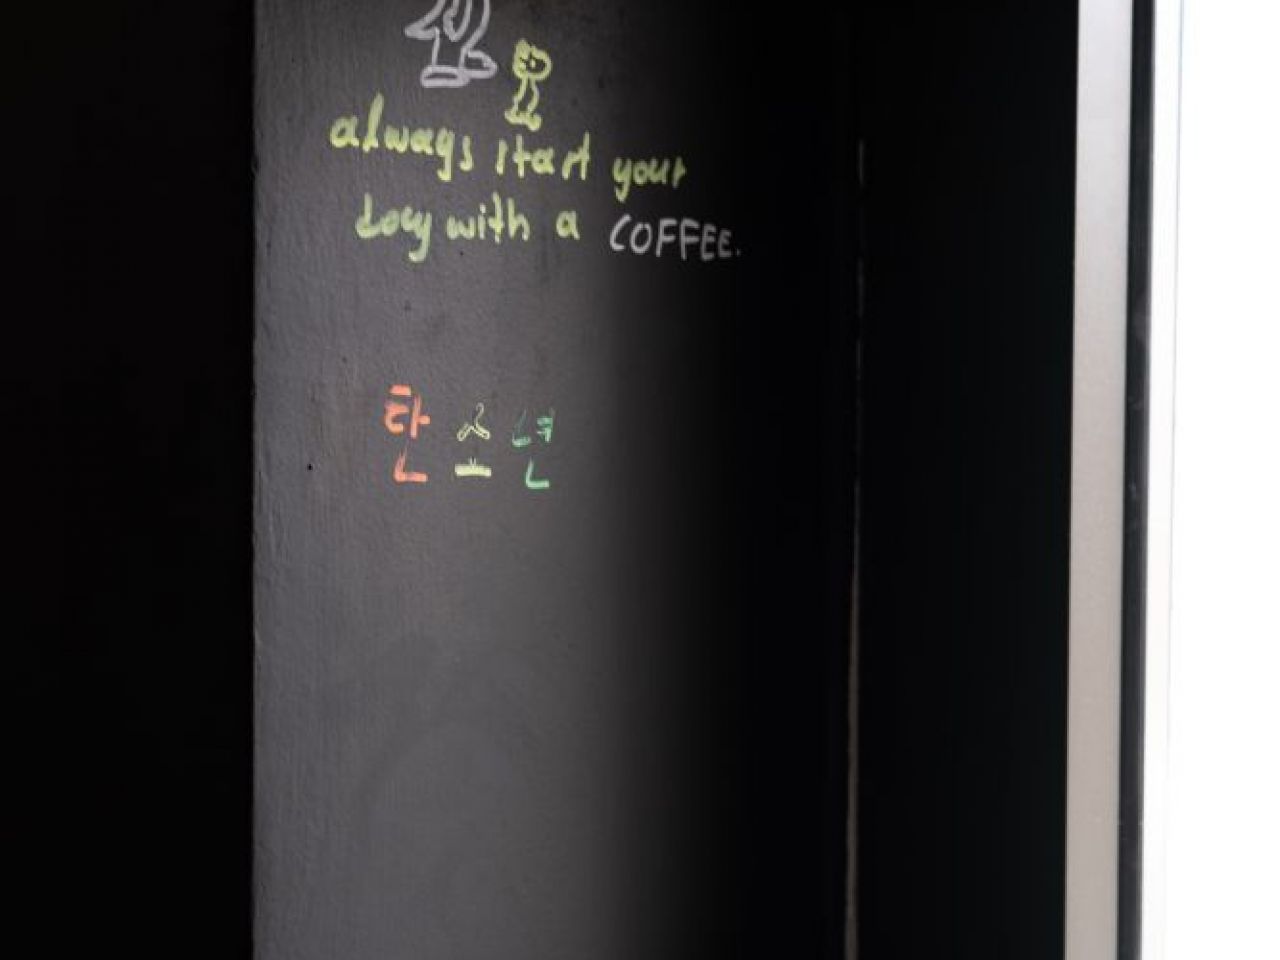 always start your
day with a COFFEE.
탄 소 년